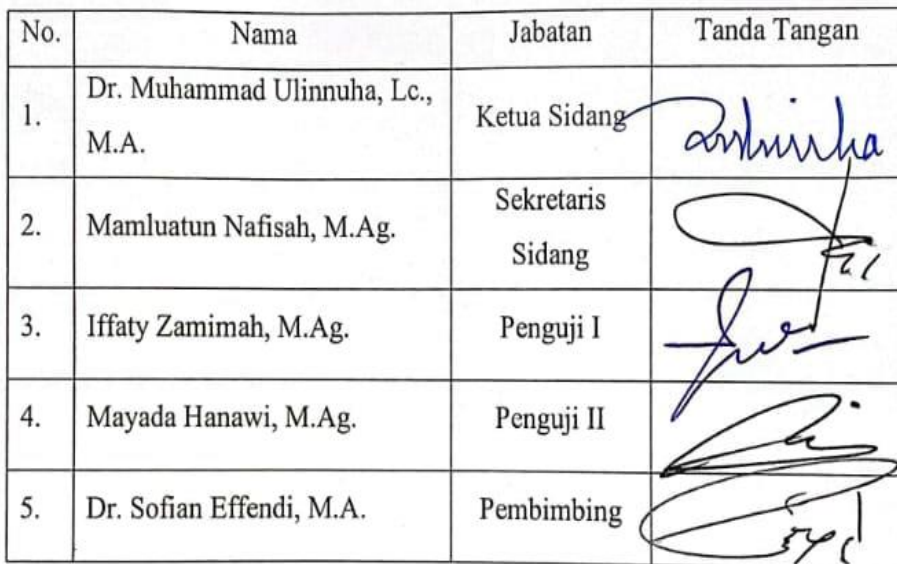 No. Nama Jabatan Tanda Tangan
1. Dr. Muhammad Ulinnuha, Lc., M.A. Ketua Sidang
2. Mamluatun Nafisah, M.Ag. Sekretaris Sidang
3. Iffaty Zamimah, M.Ag. Penguji I
4. Mayada Hanawi, M.Ag. Penguji II
5. Dr. Sofian Effendi, M.A. Pembimbing